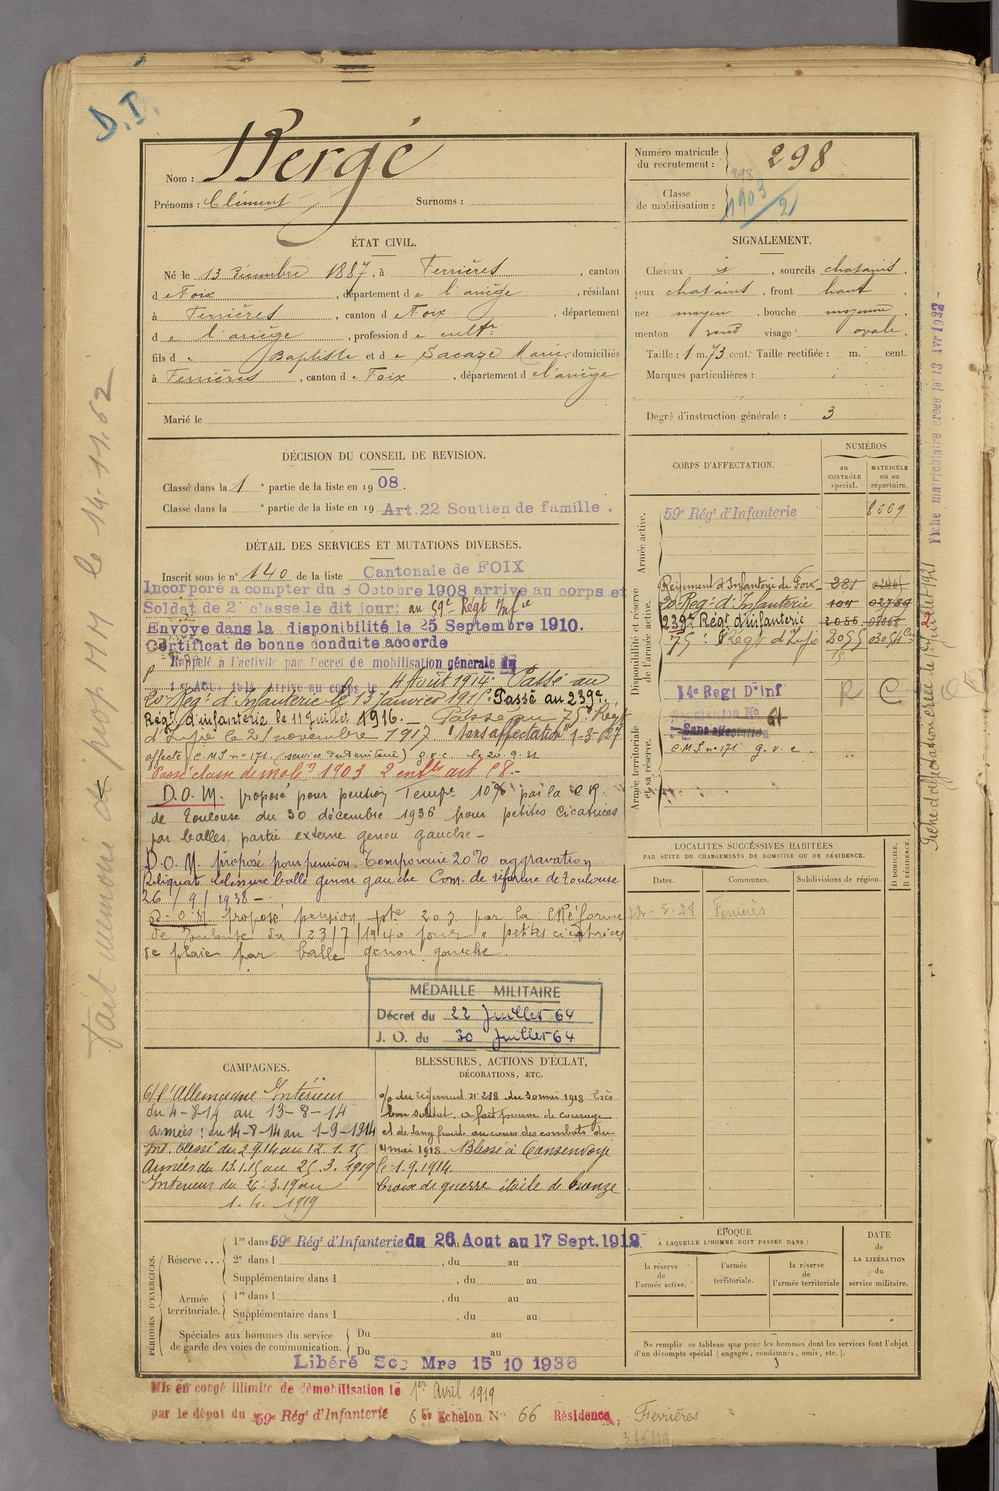 D.D.
Nom : Bergé
Prénoms : Clément Surnoms :
Numéro matricule du recrutement : 298
298
Classe de mobilisation : 1903/2
ÉTAT CIVIL.
Né le 13 Décembre 1887, à Ferrières, canton
de Foix, département de l'ariège, résidant
à Ferrières, canton de Foix, département
de l'ariège, profession de cultr
fils de Baptiste et de Sacaze Marie, domiciliés
à Ferrières, canton de Foix, département de l'ariège
Marié le
SIGNALEMENT.
Cheveux , sourcils chatains,
yeux chatains, front haut
nez moyen, bouche moyenne,
menton rond visage ovale.
Taille : 1 m. 73 cent. Taille rectifiée : m. cent.
Marques particulières :
Degré d'instruction générale : 3
DÉCISION DU CONSEIL DE REVISION.
Classé dans la 1e partie de la liste en 1908.
Classé dans la e partie de la liste en 19 Art. 22 Soutien de famille.
DÉTAIL DES SERVICES ET MUTATIONS DIVERSES.
Inscrit sous le n° 140 de la liste Cantonale de FOIX
Incorporé à compter du 8 Octobre 1908 arrivé au corps et
Soldat de 2e classe le dit jour: au 59e Régt Infie
Envoyé dans la disponibilité le 25 Septembre 1910.
Certificat de bonne conduite accordé
Rappelé à l'activité par Decret de mobilisation générale du
1er Août 1914 arrivé au corps le 4 Août 1914. Passé au
20e Régt d'Infanterie le 13 Janvier 1915. Passé au 239e
Régt d'infanterie le 11 Juillet 1916. — Passé au 75e Régt
d'Infie le 21 novembre 1917. "Sans affectation" 1-3-27
affecté C.M.I. n° 171 (service du territoire) g.v.c. le 20.9.31
Passé classe de mobon 1903 2 enfts art 58.-
D.O.M. proposé pour pension Tempre 10% par la C.R.
de Toulouse du 30 décembre 1936 pour petites cicatrices
par balles partie externe genou gauche -
D.O.M. proposé pour pension Temporaire 20% aggravation
Reliquat blessure balle genou gauche Com. de réforme de Toulouse
26/9/1938 -
D.O.M. proposé pension pte 20% par la C Réforme
de Toulouse du 23/7/1940 pour "petites cicatrices
de plaie par balle genou gauche.
MÉDAILLE MILITAIRE
Décret du 22 Juillet 64
J. O. du 30 Juillet 64
CORPS D'AFFECTATION.
NUMÉROS
au CONTRÔLE spécial.
MATRICULE ou au répertoire.
Armée active.
59e Régt d'Infanterie 8669
Disponibilité et réserve de l'armée active.
Régiment d'Infanterie de Foix 281
20e Régt d'Infanterie 104
239e Régt d'infanterie 2056
75e Régt d'Infie 2055
14e Regt D'Inf R C
61
Sans affectation
C.M.I. n° 171 g.v.c.
Armée territoriale et sa réserve.
LOCALITÉS SUCCESSIVES HABITÉES
PAR SUITE DE CHANGEMENTS DE DOMICILE OU DE RÉSIDENCE.
Dates. Communes. Subdivisions de région. D DOMICILE. R RÉSIDENCE.
Ferrières
CAMPAGNES.
c/ l'Allemagne Intérieur
du 4-8-14 au 13-8-14
Armées : du 14-8-14 au 1-9-1914
Int. blessé du 2.9.14 au 12.1.15
Armées du 13.1.15 au 25.3.1919
Intérieur du 26.3.19 au
1.4.1919
BLESSURES, ACTIONS D'ÉCLAT,
DÉCORATIONS, ETC.
o/o du régiment n° 218 du 30 mai 1918 Très
bon soldat. a fait preuve de courage
et de sang froid au cours des combats du
4 mai 1918. Blessé à Consenvoye
le 1.9.1914.
Croix de guerre étoile de bronze
PÉRIODES D'EXERCICES.
Réserve ....
1re dans l 59e Régt d'Infanterie du 26 Aout au 17 Sept. 1912
2e dans l , du au
Supplémentaire dans l , du au
Armée territoriale.
1re dans l , du au
Supplémentaire dans l , du au
Spéciales aux hommes du service de garde des voies de communication.
Du au
Du au
Libéré Sce Mre 15 10 1936
ÉPOQUE
À LAQUELLE L'HOMME DOIT PASSER DANS :
la réserve de l'armée active. l'armée territoriale. la réserve de l'armée territoriale
DATE de LA LIBÉRATION du service militaire.
Ne remplir ce tableau que pour les hommes dont les services font l'objet
d'un décompte spécial (engagés, condamnés, omis, etc.).
Mis en congé illimité de démobilisation le 1er Avril 1919
par le dépôt du 59e Régt d'Infanterie 6 Echelon No 66 Résidence, Ferrières
3/6/19
Fait mémoire de prop MM le 14-11.62
Fiche matriculaire créée le 13 Avr 1922-
Fiche d'affectation créée le 1er Juillet 1921